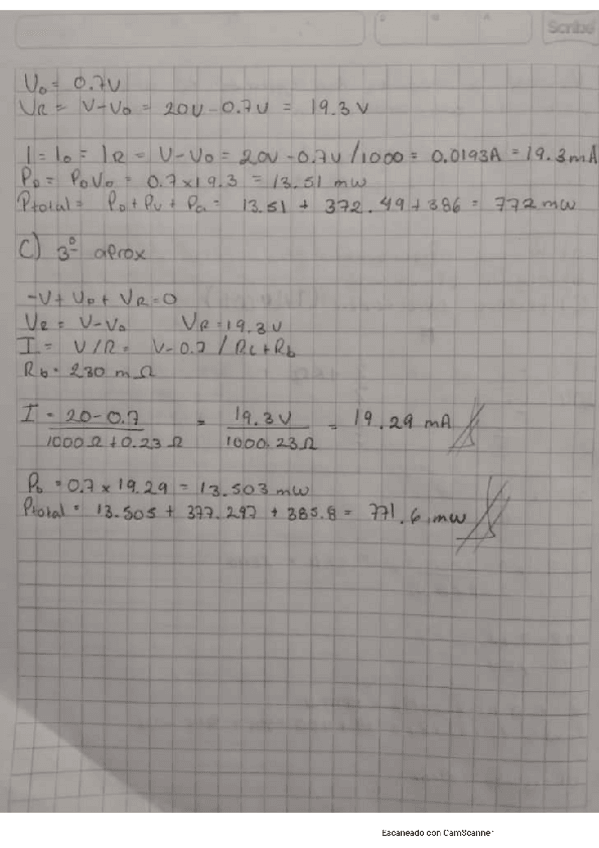 Scribe
V₀ = 0.7V
VR = V-V₀ = 20V - 0.7V = 19.3V
I = I₀ = IR = V-V₀ = 20V - 0.7V/1000 = 0.0193A = 19.3mA
P₀ = P₀V₀ = 0.7x19.3 = 13.51 mw
Ptotal = P₀ + Pv + Pa = 13.51 + 372.49 + 386 = 772 mw
C) 3° aprox
-V + V₀ + VR = 0
VR = V-V₀ VR = 19.3V
I = V/R = V-0.7 / RL+Rb
Rb = 230 mΩ
I = 20-0.7 / 1000Ω + 0.23Ω = 19.3V / 1000.23Ω = 19.29 mA
P₀ = 0.7 x 19.29 = 13.503 mw
Ptotal = 13.505 + 377.297 + 385.8 = 771.6 mw
Escaneado con CamScanner